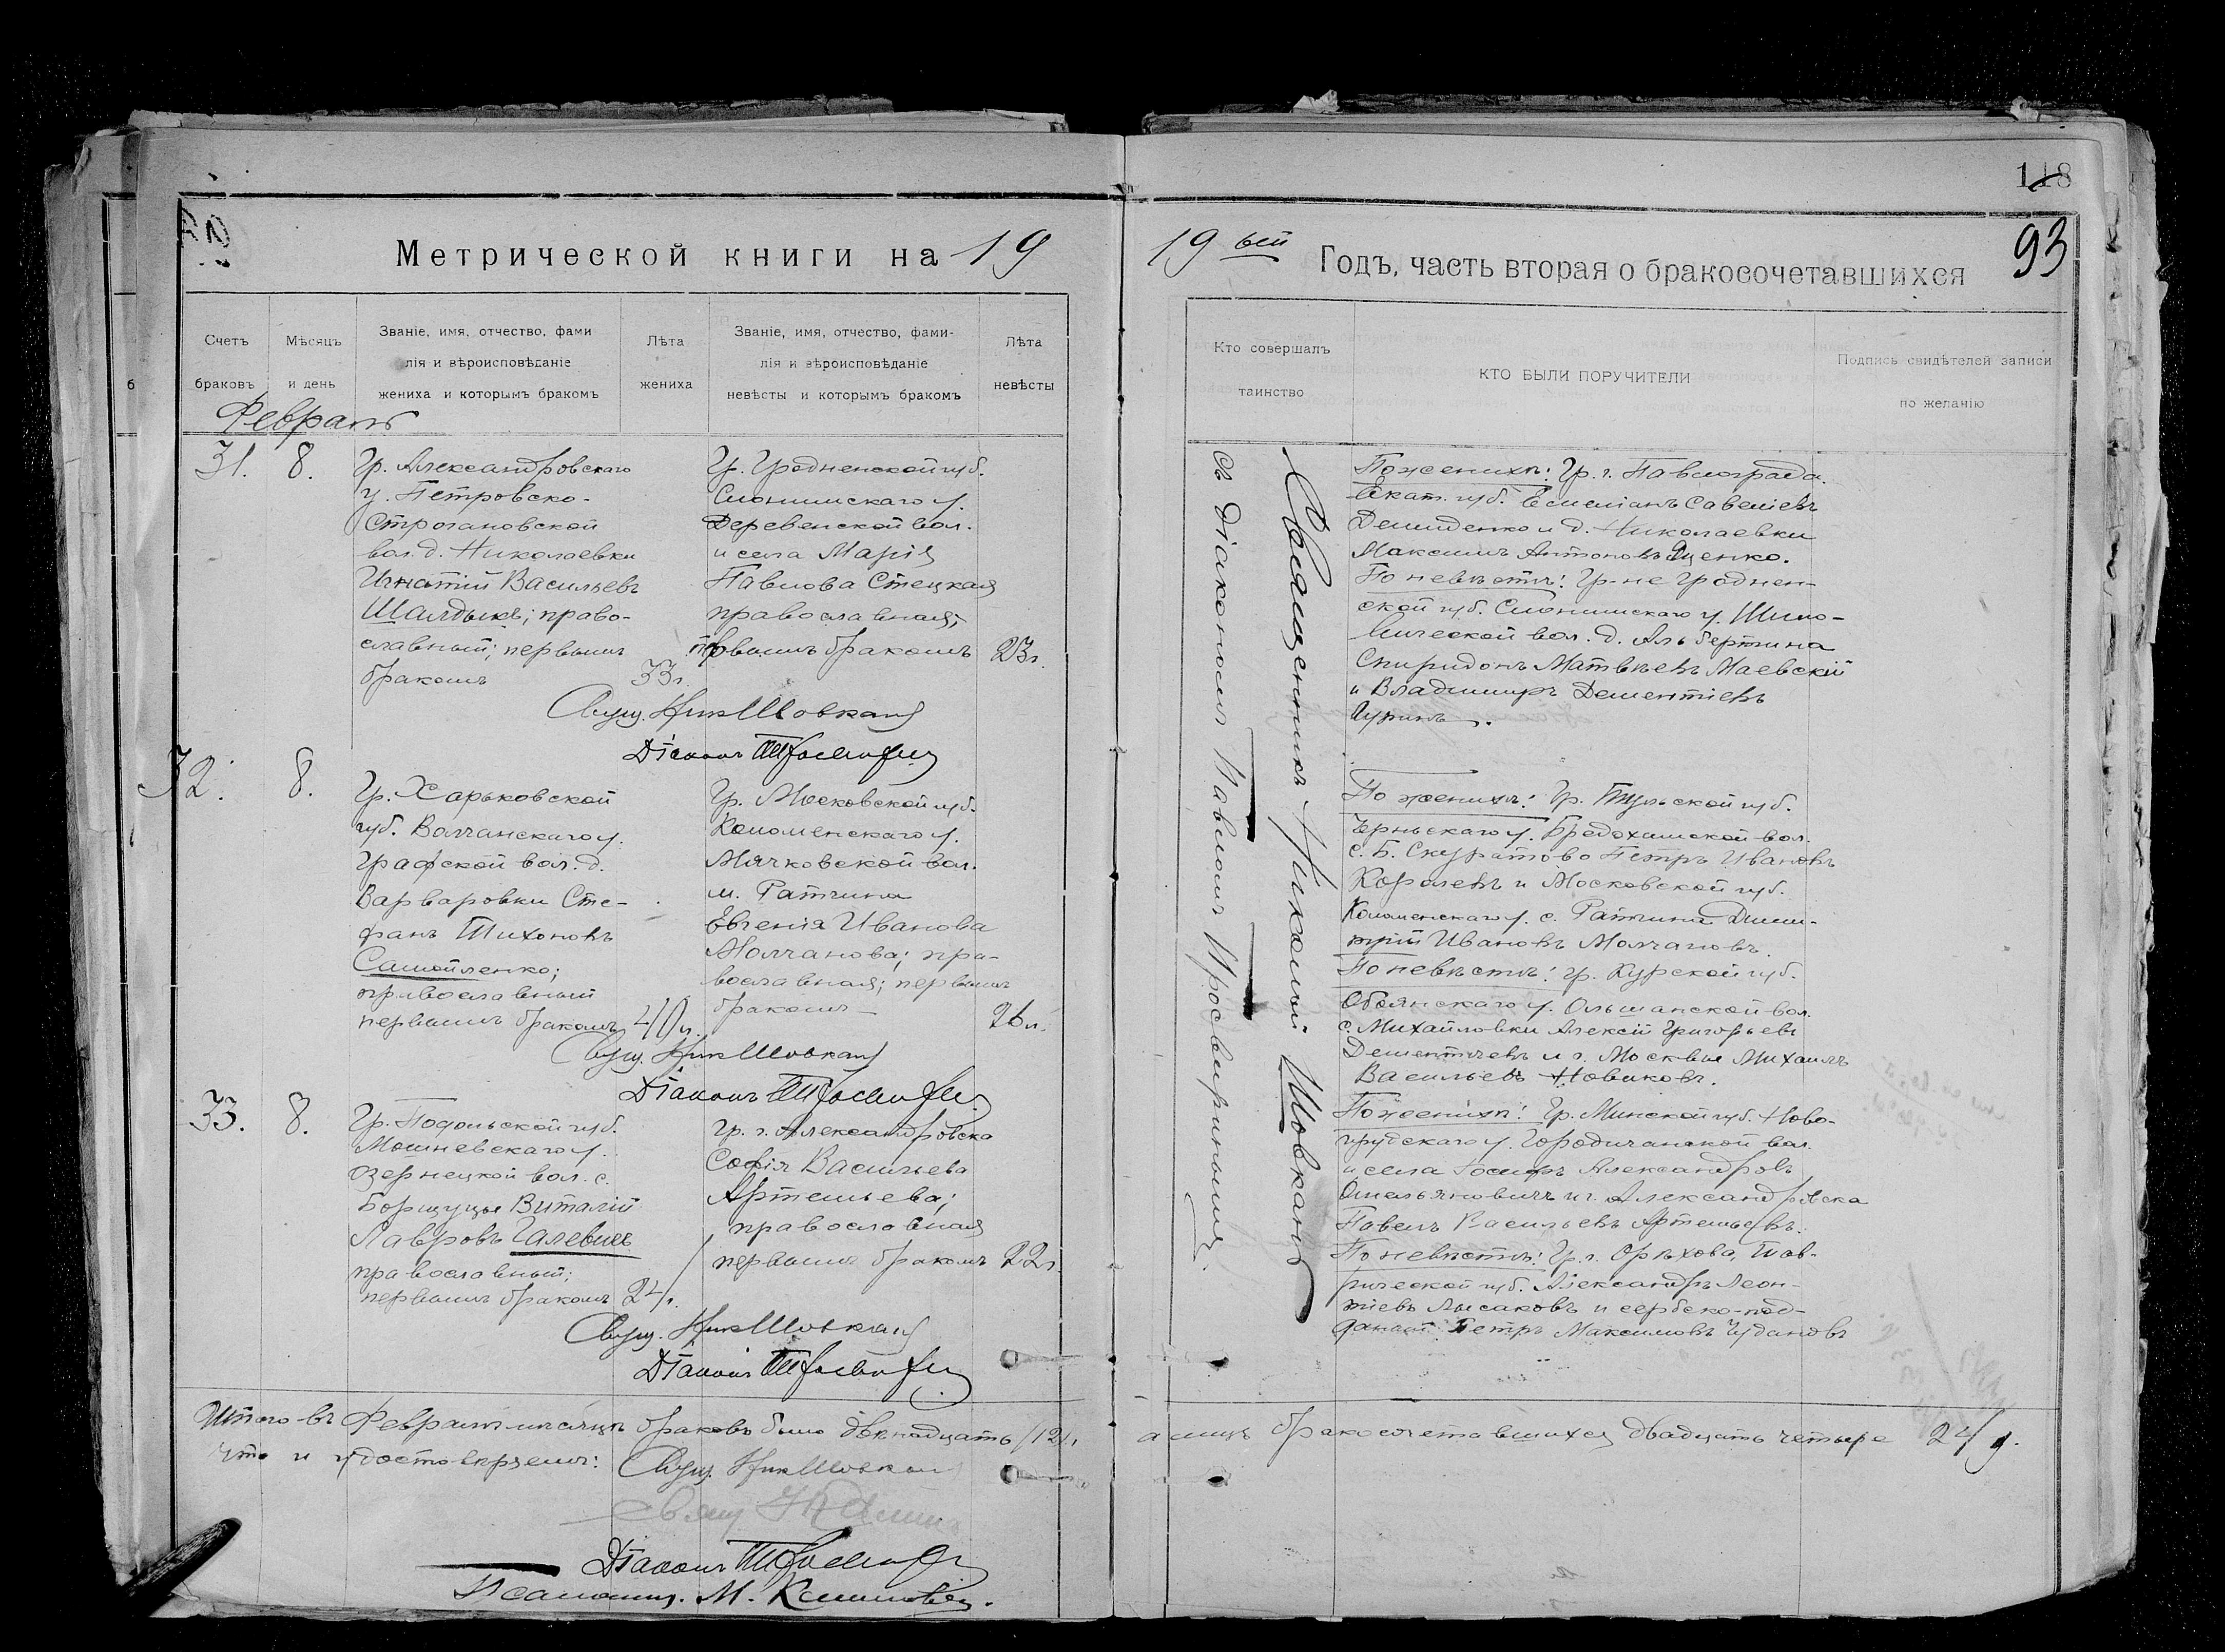 118
93
Метрической книги на 19
19 ый Годъ, часть вторая о бракосочетавшихся
Счетъ браковъ
Мѣсяцъ и день
Званіе, имя, отчество, фами
лія и вѣроисповѣданіе
жениха и которымъ бракомъ
Лѣта жениха
Званіе, имя, отчество, фами-
лія и вѣроисповѣданіе
невѣсты и которымъ бракомъ
Лѣта невѣсты
Кто совершалъ таинство
КТО БЫЛИ ПОРУЧИТЕЛИ
Подпись свидѣтелей записи
по желанію
Февраль
31. 8.
Гр. Александровскаго
у. Петровско-
Строгановской
вол. д. Николаевки
Игнатій Васильевъ
Шалдыкъ; право-
славный; первымъ
бракомъ
33 г.
Гр. Гродненской губ.
Слонимскаго у.
Деревенской вол.
и села Марія
Павлова Стецкая
православная;
первымъ бракомъ
23 г.
Свящ. Ник Шовкань
Діаконъ
Священникъ Николай Шовкань
съ діакономъ Павломъ
По женихѣ: Гр. г. Павлограда
Екат. губ. Емеліанъ Савеліевъ
Демиденко и д. Николаевки
Максимъ Антоновъ Яценко.
По невѣстѣ: Гр-не Гроднен-
ской губ. Слонимскаго у. Шило-
вической вол. д. Альбертина
Спиридонъ Матвѣевъ Маевскій
и Владимиръ Дементіевъ
32. 8.
Гр. Харьковской
губ. Волчанскаго у.
Графской вол. д.
Варваровки Сте-
фанъ Тихоновъ
Самойленко;
православный
первымъ бракомъ
40 л.
Гр. Московской губ.
Коломенскаго у.
Мячковской вол.
Ратчина
Евгенія Иванова
Молчанова; пра-
вославная; первымъ
бракомъ
26 л.
Свящ. Ник Шовкань
Діаконъ
По женихѣ: Гр. Тульской губ.
Чернскаго у. вол.
с. Б. Скуратово Петръ Ивановъ
Королевъ и Московской губ.
Коломенскаго у. с. Ратчина Дими-
трій Ивановъ Молчановъ.
По невѣстѣ: гр. Курской губ.
Обоянскаго у. Ольшанской вол.
с. Михайловки Алексій Григорьевъ
Дементьевъ и г. Москвы Михаилъ
Васильевъ Новиковъ.
33. 8.
Гр. Подольской губ.
вол. с.
Виталій
Лавровъ Галевичъ
православный;
первымъ бракомъ
24 г.
Гр. г. Александровска
Софія Васильева
Артемьева;
православная
первымъ бракомъ
22 г.
Свящ. Ник Шовкань
Діаконъ
По женихѣ: Гр. Минской губ. Ново-
грудскаго у. Городичанской вол.
и села Іосифъ Александровъ
Омельяновичъ и г. Александровска
Павелъ Васильевъ Артемьевъ.
По невѣстѣ: Гр. г. Орѣхова, Тав-
рической губ. Александръ Леон-
тіевъ Лысаковъ и сербско-под-
данный Петръ Максимовъ
Итого въ Февралѣ мѣсяцѣ браковъ было двѣнадцать /12/,
а лицъ бракосочетавшихся двадцать четыре 24/
что и удостовѣряемъ: Свящ. Ник Шовкань
Діаконъ
Псаломщ. М.